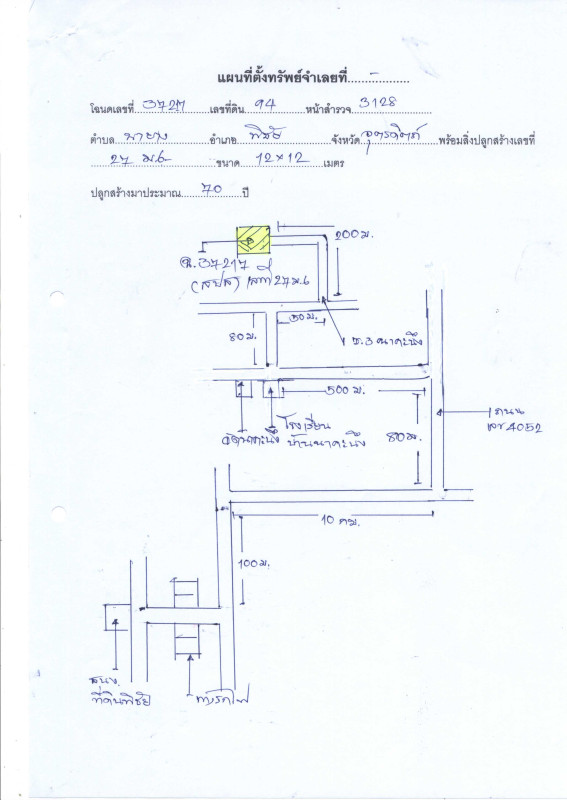 แผนที่ตั้งทรัพย์จำเลยที่.......-.......
โฉนดเลขที่ 3727 เลขที่ดิน 94 หน้าสำรวจ 3128
ตำบล นายาง อำเภอ พิชัย จังหวัด อุตรดิตถ์ พร้อมสิ่งปลูกสร้างเลขที่
27 ม.6 ขนาด 12×12 เมตร
ปลูกสร้างมาประมาณ 70 ปี
200 ม.
(สปส) เลขที่ 27 ม.6
50 ม.
80 ม.
ซ.3 นาคะนึง
500 ม.
ถนน
80 ม.
4052
โรงเรียน
วัดนาคะนึง บ้านนาคะนึง
10 กม.
100 ม.
สนง.
ที่ดินพิชัย
ทางรถไฟ